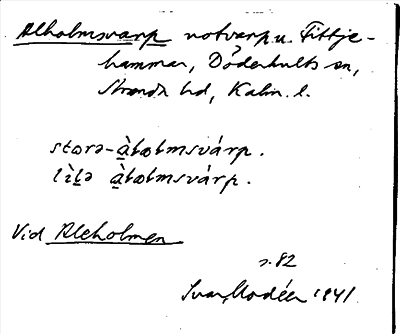 Alholmsvarp notvarp u. Fittje-
hammar, Döderhults sn,
Stranda hd, Kalm. l.
stɷrə-àlɷlmsvárp.
lìlə àlɷlmsvárp.
Vid Aleholmen
s. 82
Ivar Modéer 1941